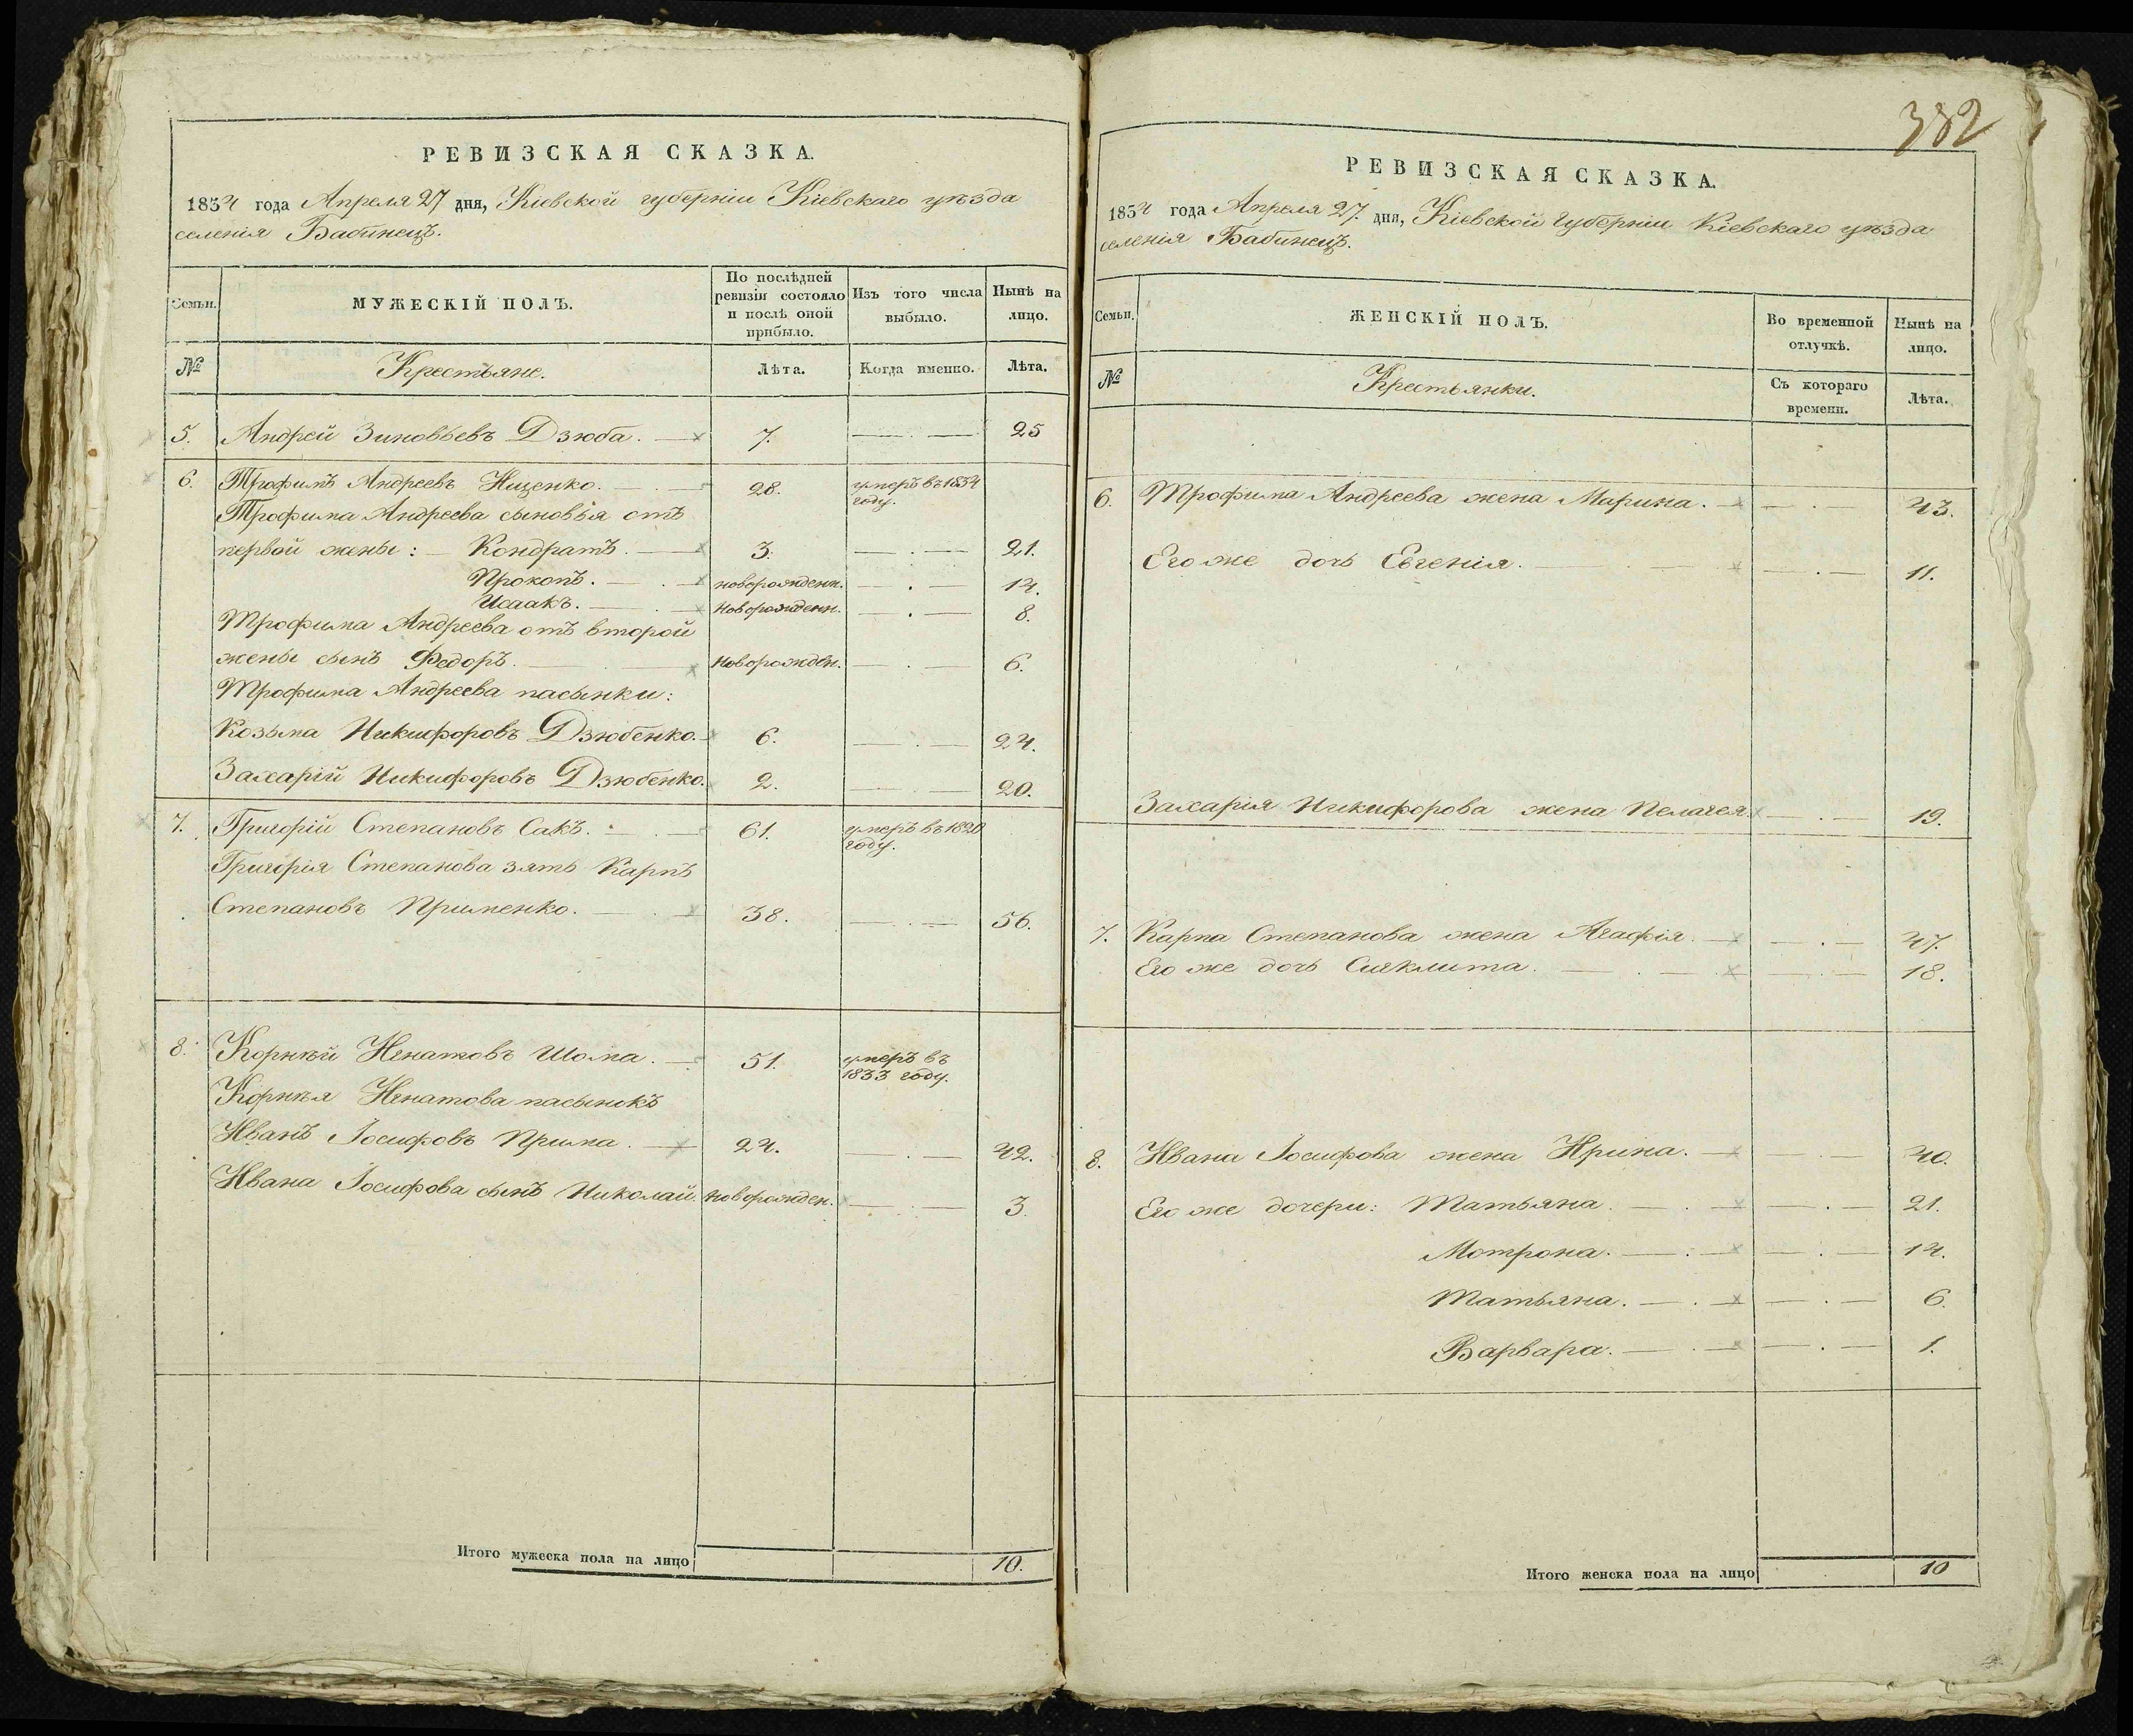 382
РЕВИЗСКАЯ СКАЗКА.
1834 года Апреля 27 дня, Кіевской губерніи Кіевскаго уѣзда
селенія Бабинецъ.
Семьи. МУЖЕСКІЙ ПОЛЪ. По послѣдней ревизіи состояло и послѣ оной прибыло. Изъ того числа выбыло. Нынѣ на лицо.
№ Крестьяне. Лѣта. Когда именно. Лѣта.
5. Андрей Зиновьевъ Дзюба. 7. 25
6. Трофимъ Андреевъ Ищенко. 28. умеръ въ 1834 году.
Трофима Андреева сыновья отъ
первой жены: Кондратъ. 3. 21.
Прокопъ. новорожденн. 14.
Исаакъ. новорожденн. 8.
Трофима Андреева отъ второй
жены сынъ Федоръ. новорожден. 6.
Трофима Андреева пасынки:
Козьма Никифоровъ Дзюбенко. 6. 24.
Захарій Никифоровъ Дзюбенко. 2. 20.
7. Григорій Степановъ Сакъ. 61. умеръ въ 1820 году.
Григорія Степанова зять Карпъ
Степановъ Применко. 38. 56.
8. Корнѣй Игнатовъ Шома. 51. умеръ въ 1833 году.
Корнѣя Игнатова пасынокъ
Иванъ Іосифовъ Прима. 24. 42.
Ивана Іосифова сынъ Николай. новорожден. 3.
Итого мужеска пола на лицо 10.
РЕВИЗСКАЯ СКАЗКА.
1834 года Апреля 27. дня, Кіевской Губерніи Кіевскаго уѣзда
селенія Бабинецъ.
Семьи. ЖЕНСКІЙ ПОЛЪ. Во временной отлучкѣ. Нынѣ на лицо.
№ Крестьянки. Съ котораго времени. Лѣта.
6. Трофима Андреева жена Марина. 43.
Его же дочь Евгенія. 11.
Захарія Никифорова жена Пелагея. 19.
7. Карпа Степанова жена Агафія. 47.
Его же дочь Сиклита. 18.
8. Ивана Іосифова жена Ирина. 40.
Его же дочери: Татьяна. 21.
Мотрона. 14.
Татьяна. 6.
Варвара. 1.
Итого женска пола на лицо 10